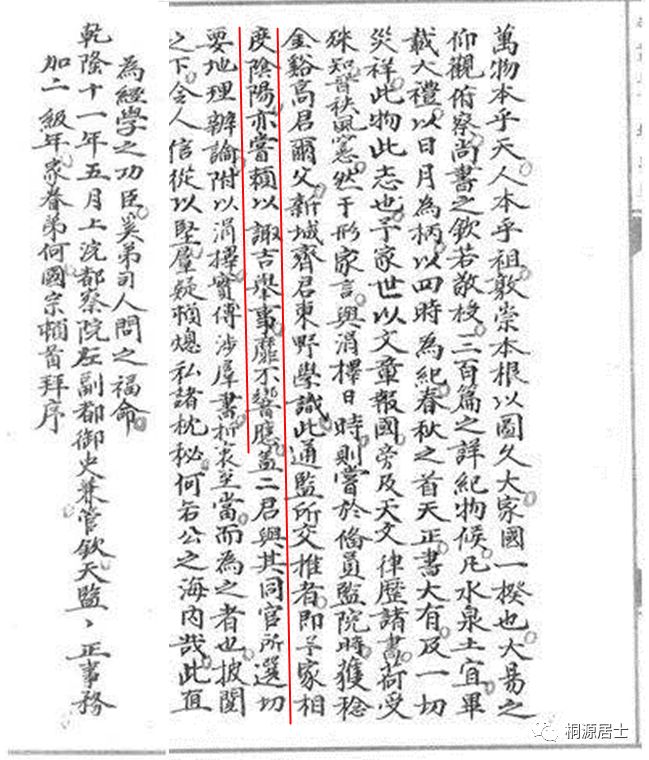 萬物本乎天人本乎祖敦崇本根以圖久大家國一揆也大易之
仰觀俯察尚書之欽若敬授三百篇之詳紀物候凡水泉土宜畢
載大禮以日月為柄以四時為紀春秋之首天正書大有及一切
災祥此物此志也予家世以文章報國旁及天文律歷諸書荷受
殊知晉秩風憲然于形家言與涓擇日時則嘗於偹員監院時獲稔
金谿高君爾父新城齊君東野學識此通監所交推者即予家相
度陰陽亦嘗賴以諏吉舉事靡不響應蓋二君與其同官所選切
要地理辨論附以涓擇實傅涉羣書折衷至當而為之者也披閱
之下令人信從以堅羣疑頓熄私諸枕秘何若公之海内哉此直
為經學之功臣奚弟司人間之福命
乾隆十一年五月上浣都察院左副都御史兼管欽天監丶正事務
加二級年家眷弟何國宗頓首拜序
桐源居士